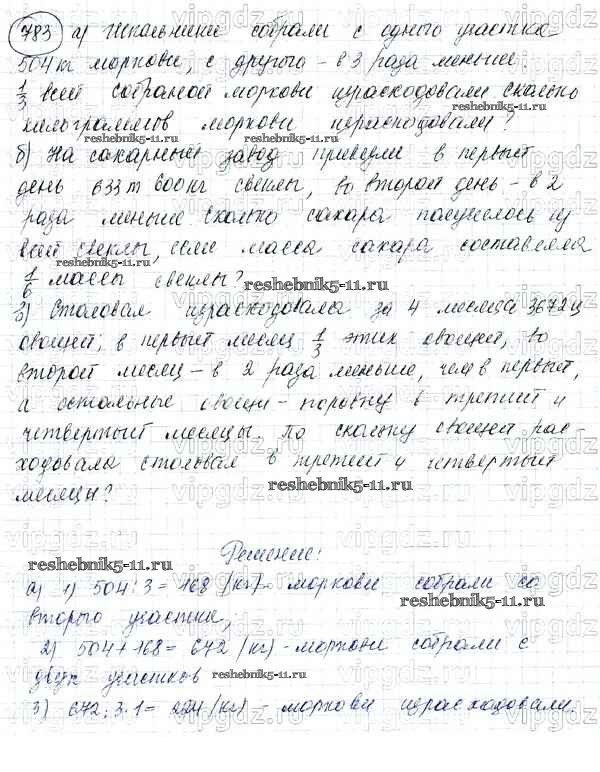 783 а) Школьники собрали с одного участка
504 кг моркови, с другого - в 3 раза меньше.
1/3 всей собраной моркови израсходовали сколько
килограммов моркови израсходовали?
reshebnik5-11.ru
б) На сахарный завод привезли в первый
день 633 т 600 кг свеклы, во второй день - в 2
раза меньше. Сколько сахара получилось из
всей свеклы, если масса сахара составляла
1/6 массы свеклы?
reshebnik5-11.ru
в) Столовая израсходовала за 4 месяца 3672 ц
овощей; в первый месяц 1/3 этих овощей, во
второй месяц - в 2 раза меньше, чем в первый,
а остальные овощи - поровну в третий и
четвертый месяцы. По скольку овощей рас-
ходовала столовая в третий и четвертый
месяцы?
reshebnik5-11.ru
Решение:
reshebnik5-11.ru
а) 1) 504 : 3 = 168 (кг) - моркови собрали со
reshebnik5-11.ru
второго участка,
2) 504 + 168 = 672 (кг) - моркови собрали с
двух участков
reshebnik5-11.ru
3) 672 : 3 · 1 = 224 (кг) - моркови израсходовали.